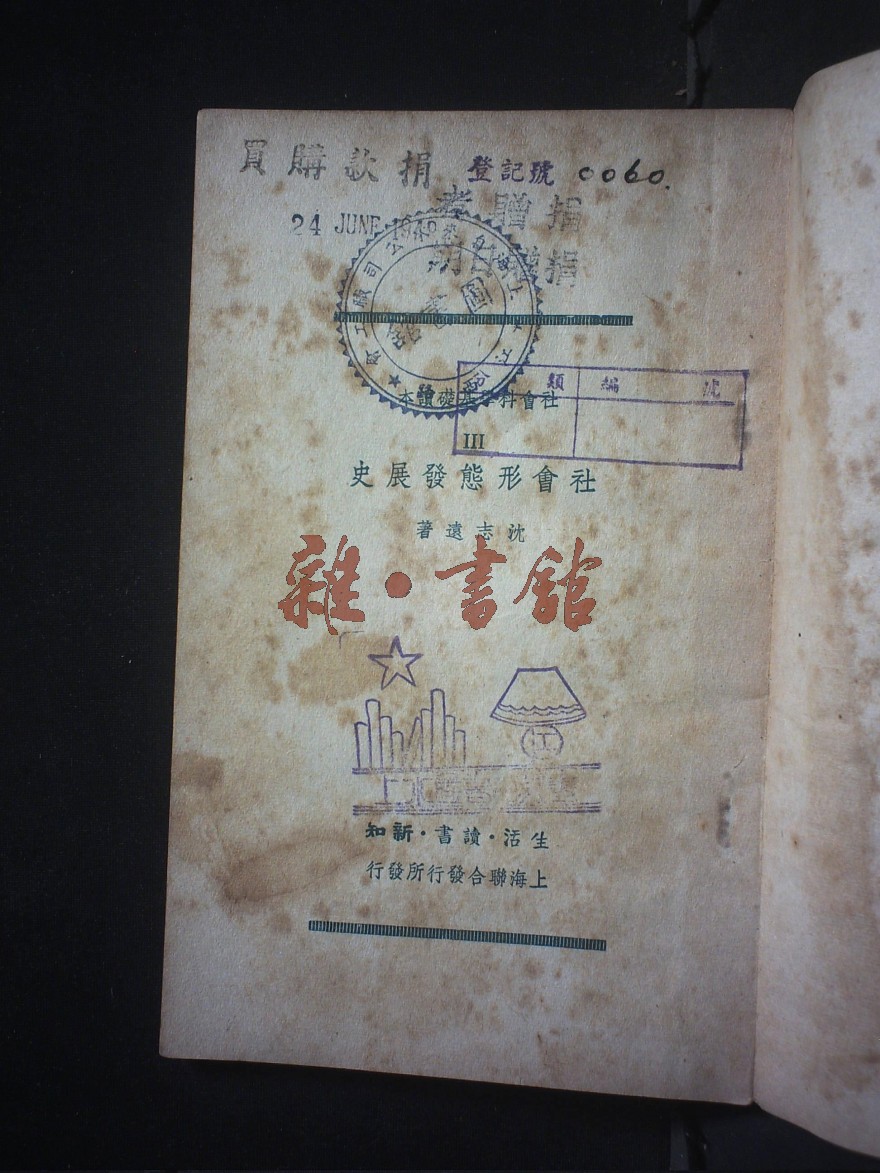 捐款購買
登記號 0060.
24 JUNE
捐贈者
圖書館
社會科學基礎讀本
III
社會形態發展史
沈志遠著
雜・書舘
江
生活・讀書・新知
上海聯合發行所發行